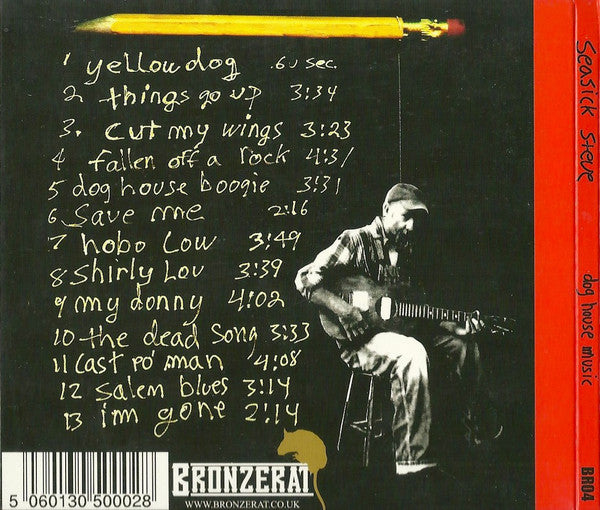 1 yellow dog .60 sec.
2 things go up 3:34
3. cut my wings 3:23
4 fallen off a rock 4:31
5 dog house boogie 3:31
6 save me 2:16
7 hobo Low 3:49
8 Shirly Lou 3:39
9 my donny 4:02
10 the dead song 3:33
11 Last po' man 4:08
12 salem blues 3:14
13 i'm gone 2:14
5 060130 500028
BRONZERAT
WWW.BRONZERAT.CO.UK
Seasick Steve
dog house music
BR04